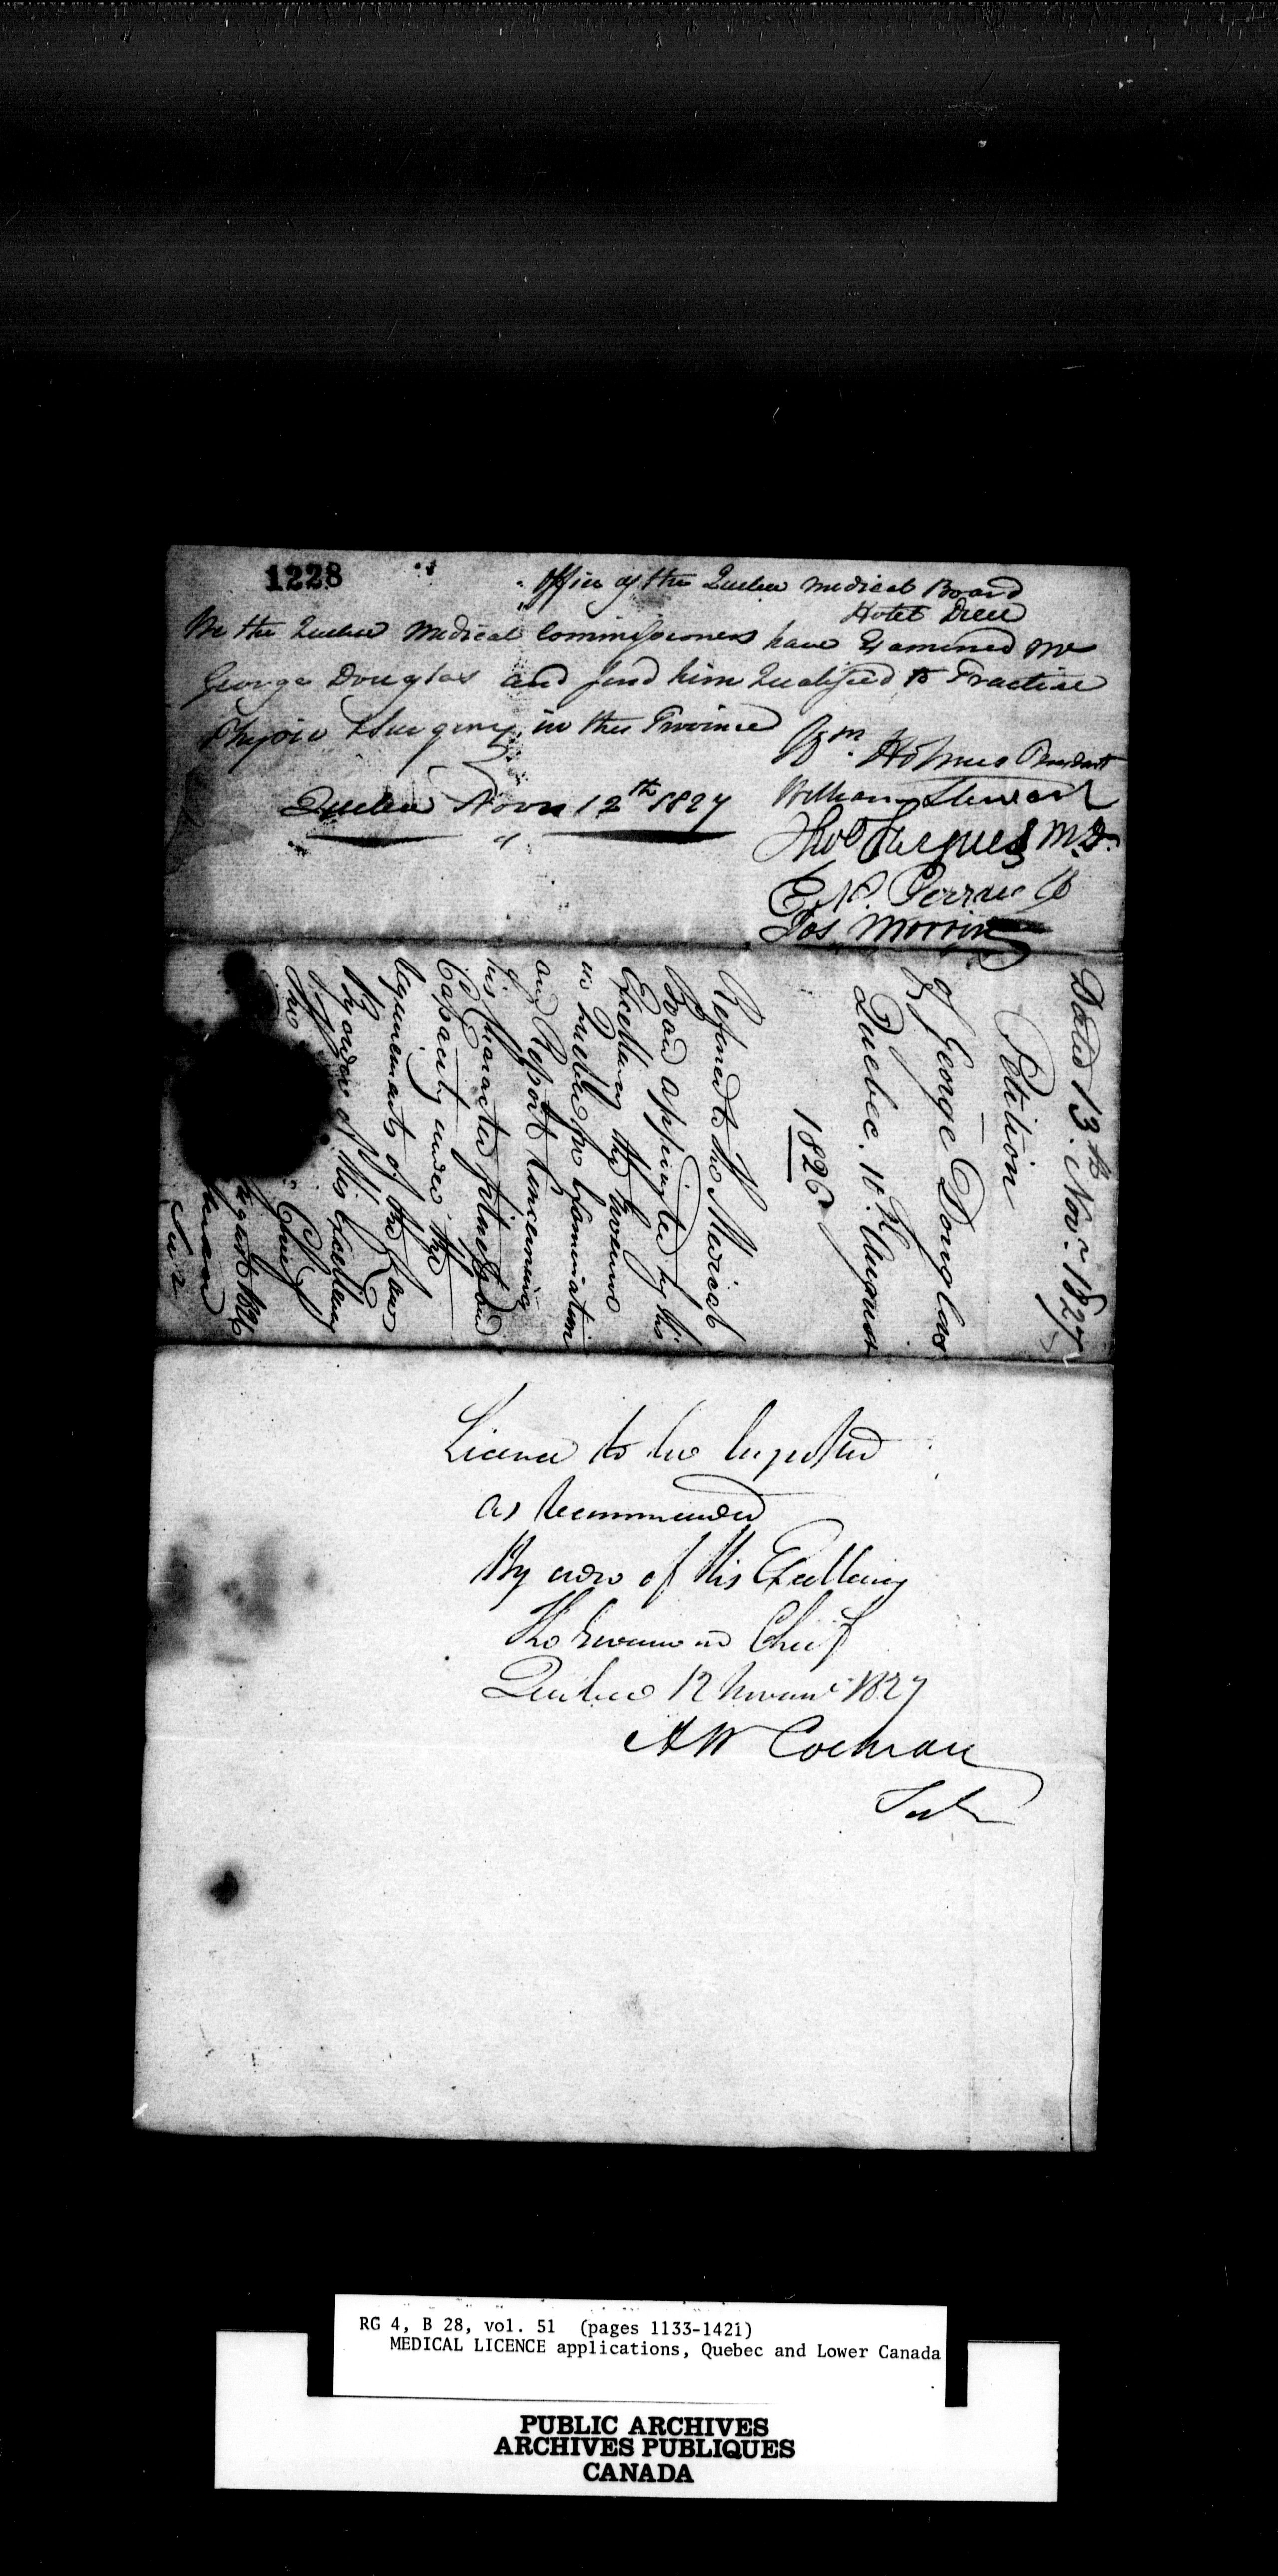 1228
Office of the Quebec Medical Board
Hotel Dieu
We the Quebec Medical Commissioners have Examined Mr
George Douglas and find him Qualified to Practise
Physic & Surgery in this Province
Quebec Novr 12th 1827
Wm. Holmes President
William Stewart
Thos Fargues M.D.
Jos Morrin
Dated 13th Novr 1827
Petition
of George Douglas
Quebec 10. August
1826
Referred to the Medical
Board appointed by His
Excellency the Governor
in Quebec for Examination
and Report concerning
his Character fitness and
Capacity under the
requirements of the Law
By order of His Excellency
The
Chief
August 1826
Licence to be
as recommended
By order of His Excellency
The Governor in Chief
Quebec 12 Novemr 1827
A W Cochran
Secy
RG 4, B 28, vol. 51 (pages 1133-1421)
MEDICAL LICENCE applications, Quebec and Lower Canada
PUBLIC ARCHIVES
ARCHIVES PUBLIQUES
CANADA